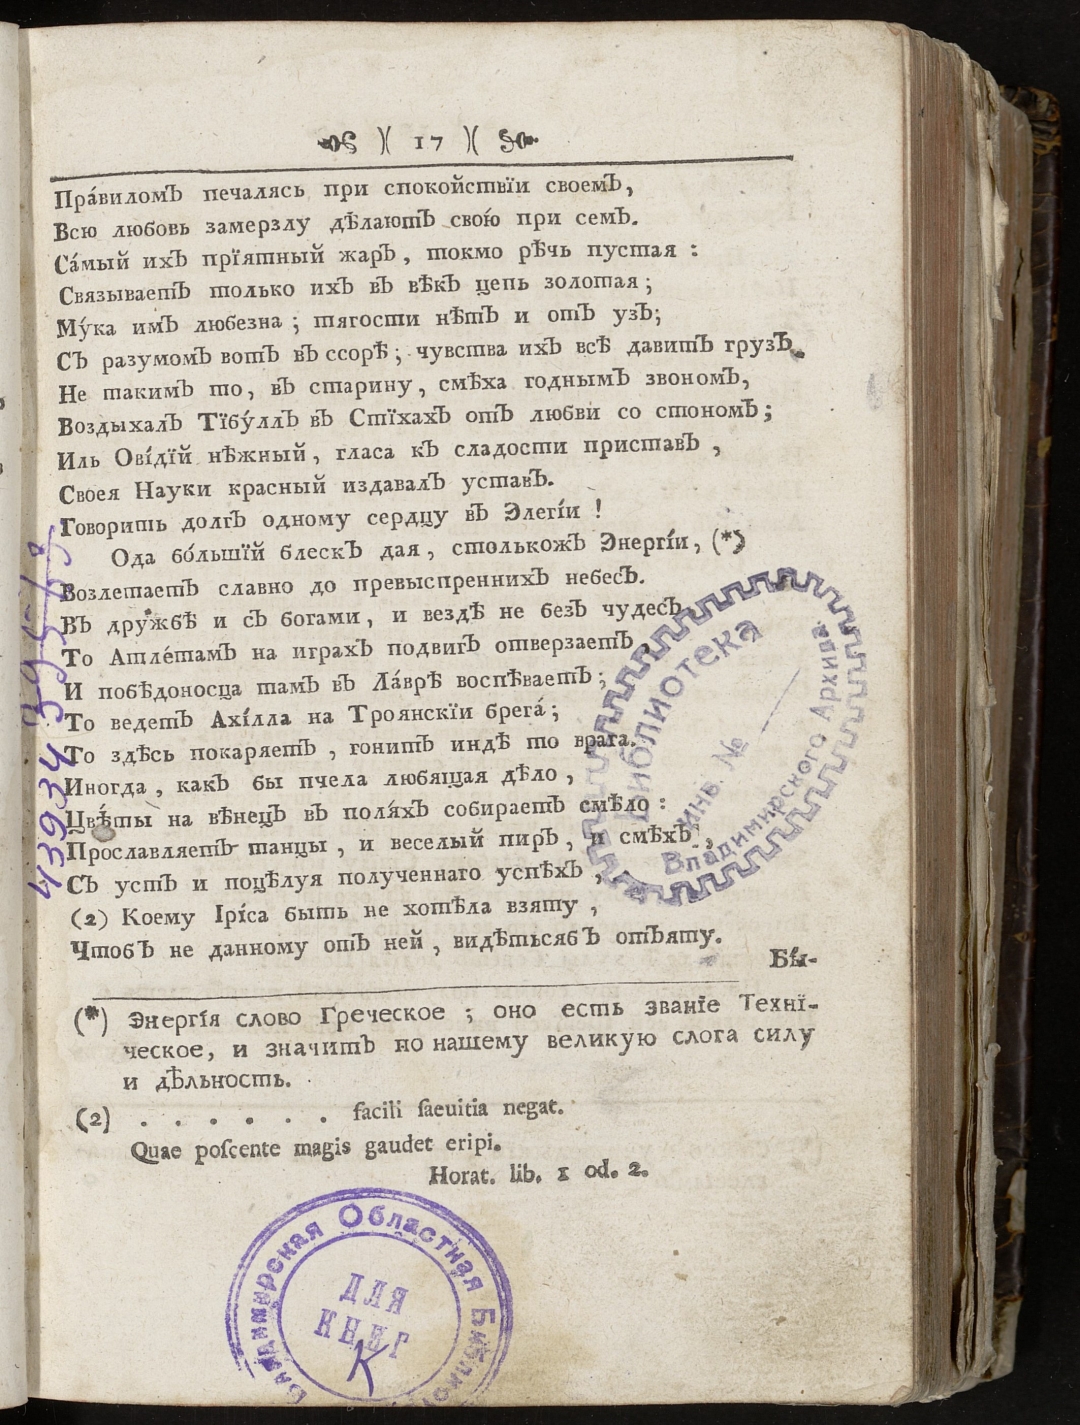 )( 17 )(
Пра́виломЪ печалясь при спокойствїи своемЪ,
Всю любовь замерзлу дѣлаютЪ свою́ при семЪ.
Са́мый ихЪ прїятный жарЪ, токмо рѣчь пустая :
СвязываетЪ только ихЪ вЪ вѣкЪ цепь золотая ;
Му́ка имЪ любезна ; тягости нѣтЪ и отЪ узЪ;
СЪ разумомЪ вотЪ вЪ ссорѣ ; чувства ихЪ всѣ давитЪ грузЪ.
Не такимЪ то, вЪ старину, смѣха годнымЪ звономЪ,
ВоздыхалЪ Тїбу́ллЪ вЪ СтїхахЪ отЪ любви со стономЪ ;
Иль Ові́дїй нѣжный, гласа кЪ сладости приставЪ ,
Своея Науки красный издавалЪ уставЪ.
Говорить долгЪ одному сердцу вЪ Элегі́и !
Ода бо́льшїй блескЪ дая, столькожЪ Энергі́и, (*)
ВозлетаетЪ славно до превыспреннихЪ небесЪ.
ВЪ дружбѣ и сЪ богами, и вездѣ не безЪ чудесЪ
То Атле́тамЪ на играхЪ подвигЪ отверзаетЪ ,
И побѣдоносца тамЪ вЪ Ла́врѣ воспѣваетЪ ;
То ведетЪ Ахі́лла на Троянскїи брега́ ;
То здѣсь покаряетЪ , гонитЪ индѣ то врага.
Иногда , какЪ бы пчела любящая дѣло ,
Цвѣ́ты на вѣнецЪ вЪ поля́хЪ собираетЪ смѣло :
ПрославляетЪ танцы , и веселый пирЪ , и смѣхЪ ,
СЪ устЪ и поцѣлуя полученнаго успѣхЪ ,
(2) Коему Ірі́са быть не хотѣла взяту ,
ЧтобЪ не данному отЪ ней , видѣтьсябЪ отЪяту.
Бы́-
(*) Энергі́я слово Греческое ; оно есть званіе Технї-
ческое, и значитЪ по нашему великую слога силу
и дѣльность.
(2) . . . . . . . facili ſaeuitia negat.
Quae poſcente magis gaudet eripi.
Horat. lib. 1 od. 2.
43934 395-13
Библиотека
Инв. №
Владимирского Архива
Владимирская Областная Библиот
ДЛЯ
КНИГ
К